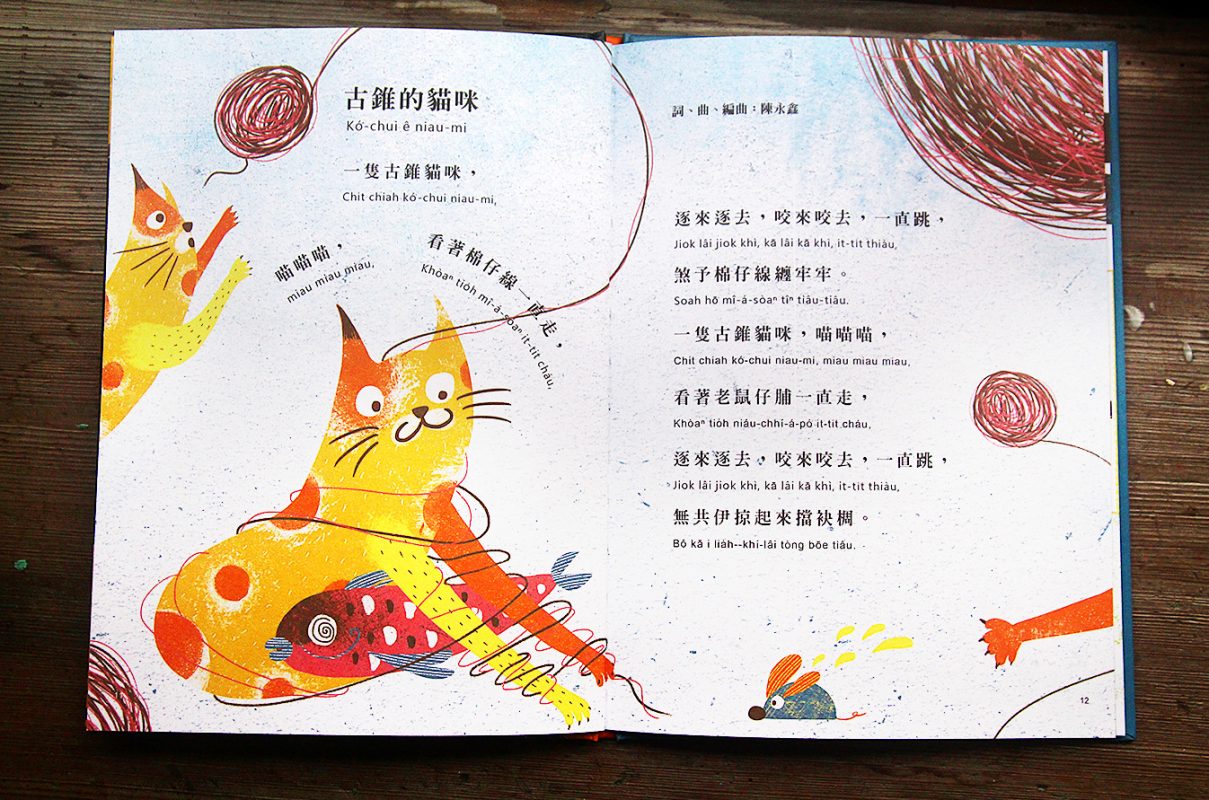 古錐的貓咪
Kó-chui ê niau-mi
一隻古錐貓咪，
Chit chiah kó-chui niau-mi,
喵喵喵，
miau miau miau,
看著棉仔線一直走，
Khòaⁿ tio̍h mî-á-sòaⁿ it-ti̍t cháu,
詞、曲、編曲：陳永鑫
逐來逐去，咬來咬去，一直跳，
Jiok lâi jiok khì, kā lâi kā khì, it-ti̍t thiàu,
煞予棉仔線纏牢牢。
Soah hō mî-á-sòaⁿ tîⁿ tiâu-tiâu.
一隻古錐貓咪，喵喵喵，
Chit chiah kó-chui niau-mi, miau miau miau,
看著老鼠仔脯一直走，
Khòaⁿ tio̍h niáu-chhí-á-pó it-ti̍t cháu,
逐來逐去，咬來咬去，一直跳，
Jiok lâi jiok khì, kā lâi kā khì, it-ti̍t thiàu,
無共伊掠起來擋袂椆。
Bô kā i lia̍h--khí-lâi tòng bōe tiâu.
12